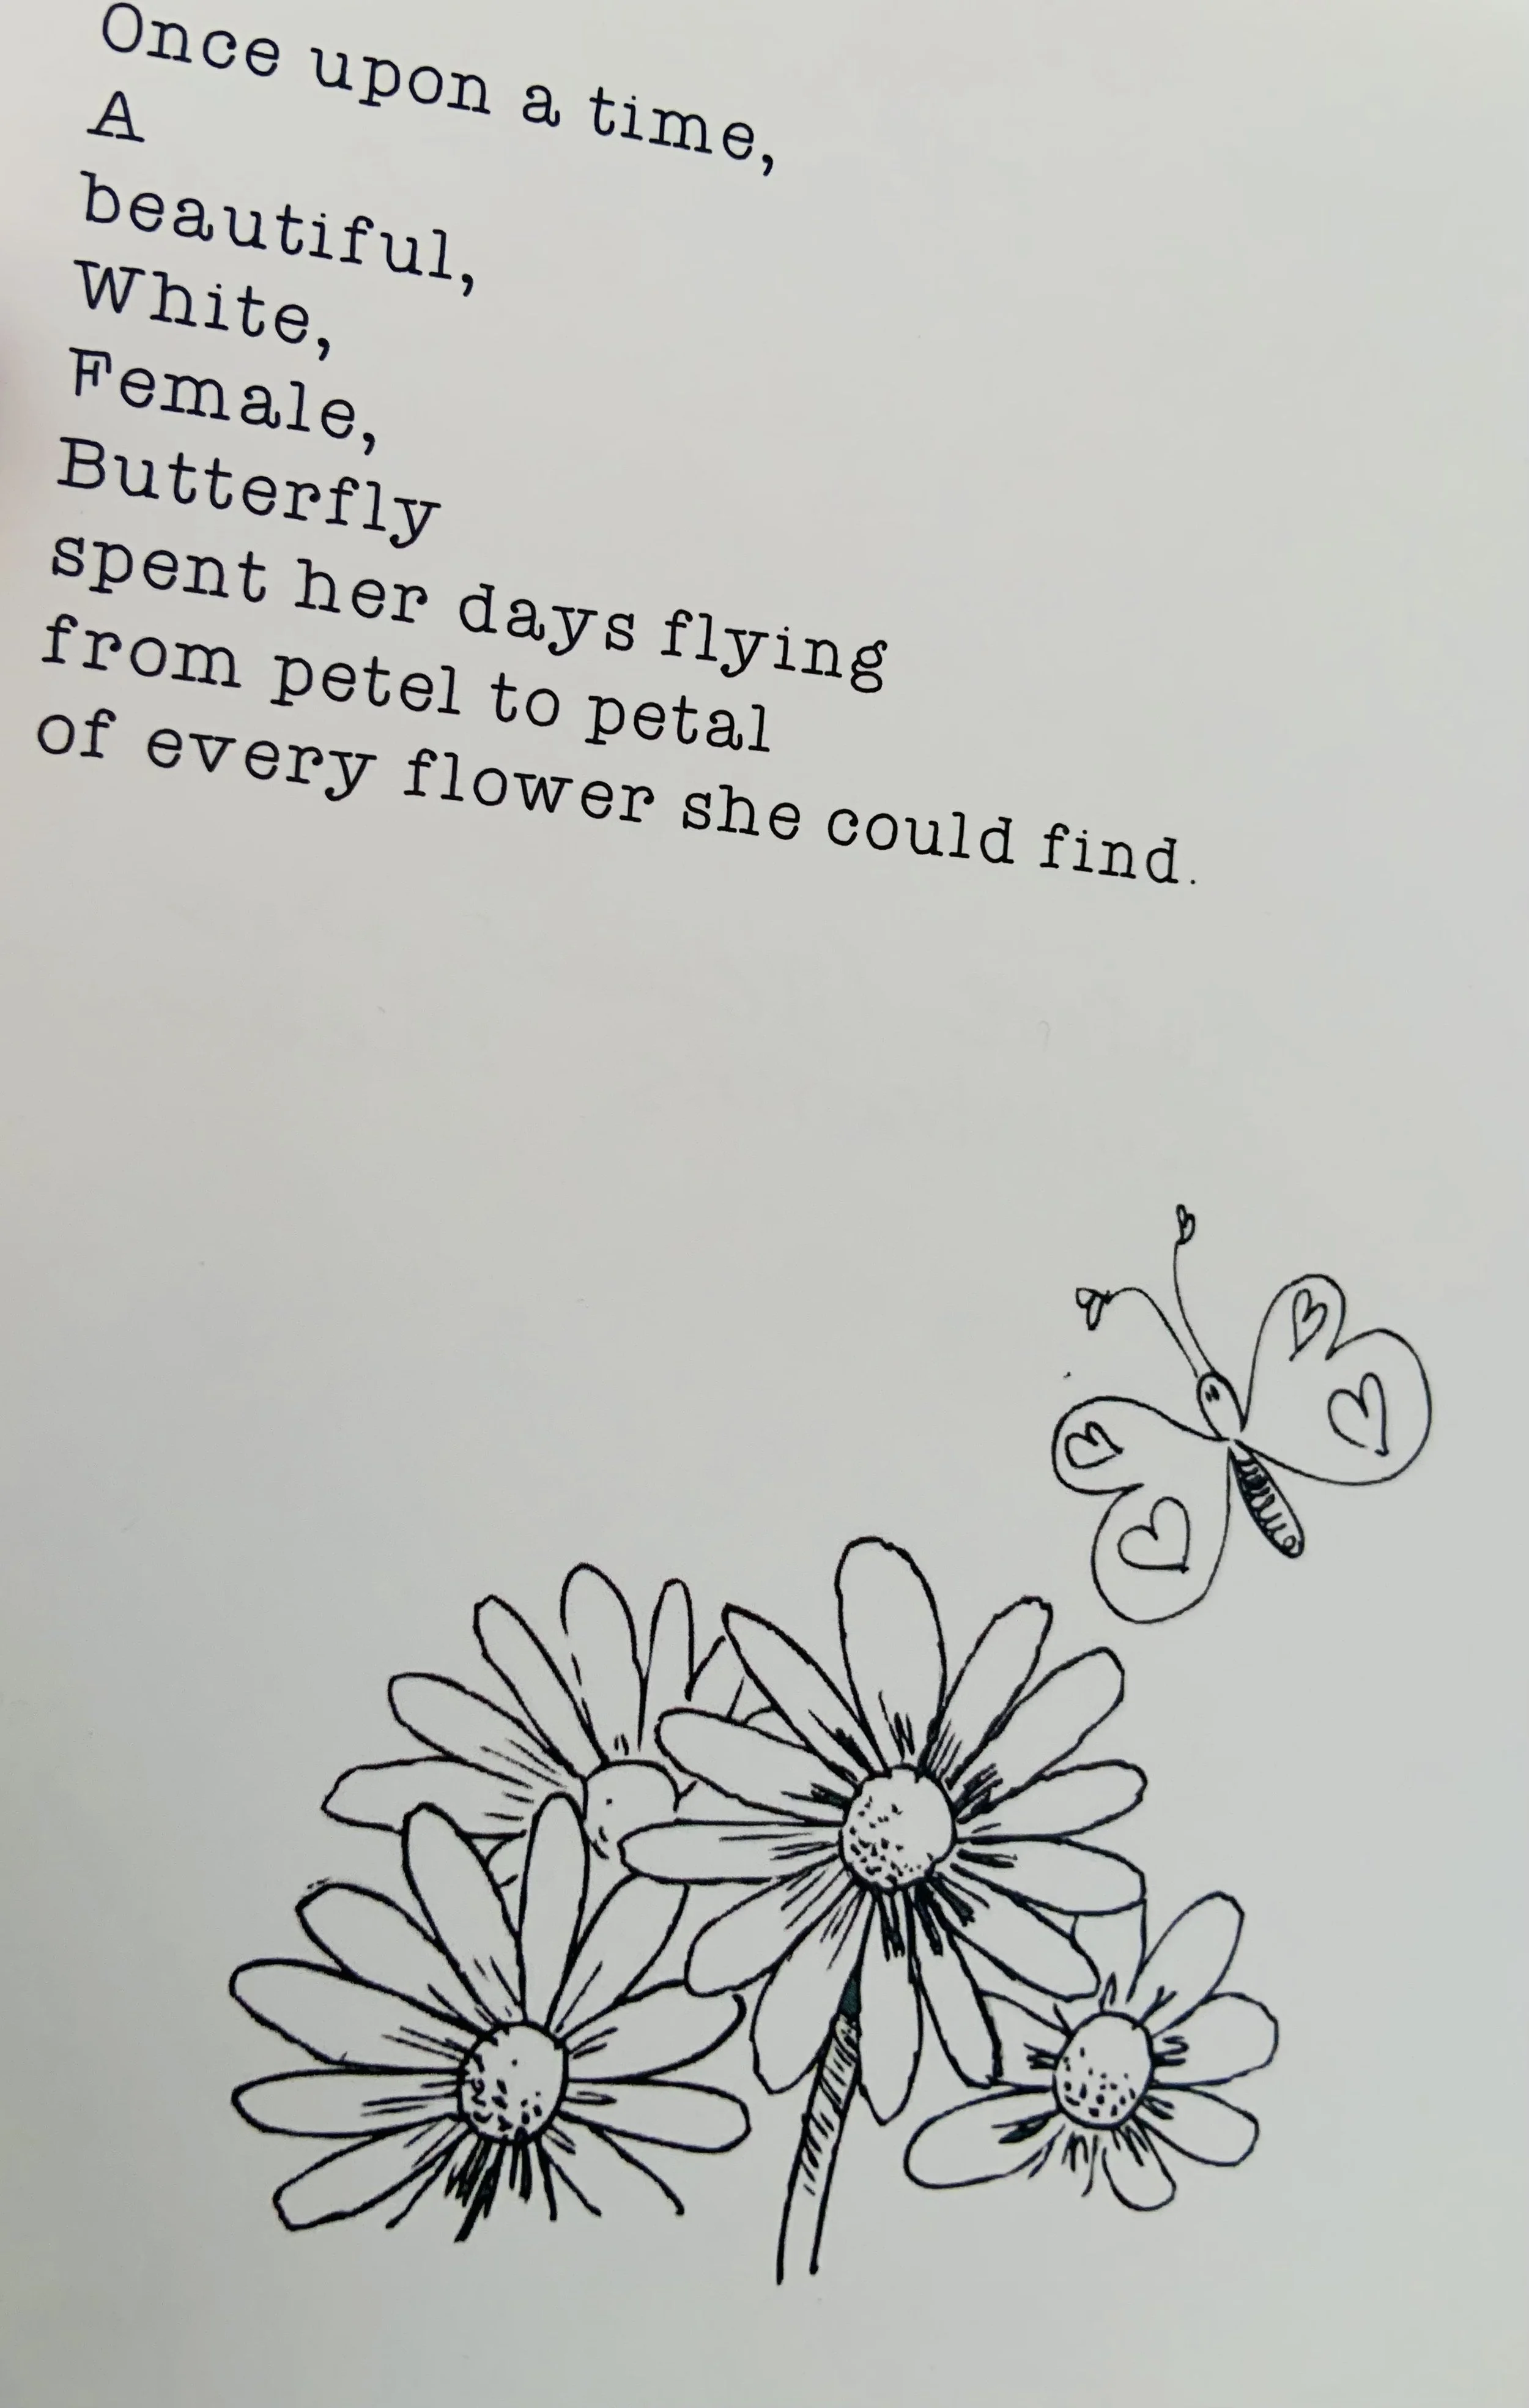 Once upon a time,
A
beautiful,
White,
Female,
Butterfly
spent her days flying
from petel to petal
of every flower she could find.